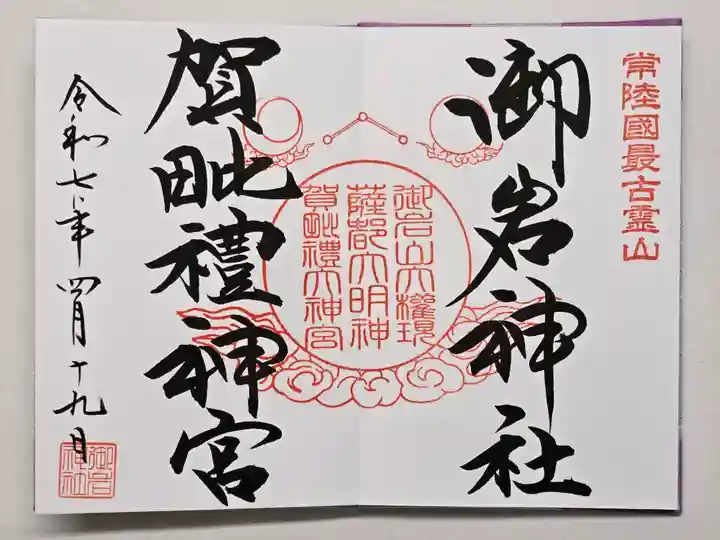 常陸國最古霊山
御岩神社
御岩山大權現
薩都大明神
賀毗禮大神宮
賀毗禮神宮
令和七年四月十九日
御岩
神社